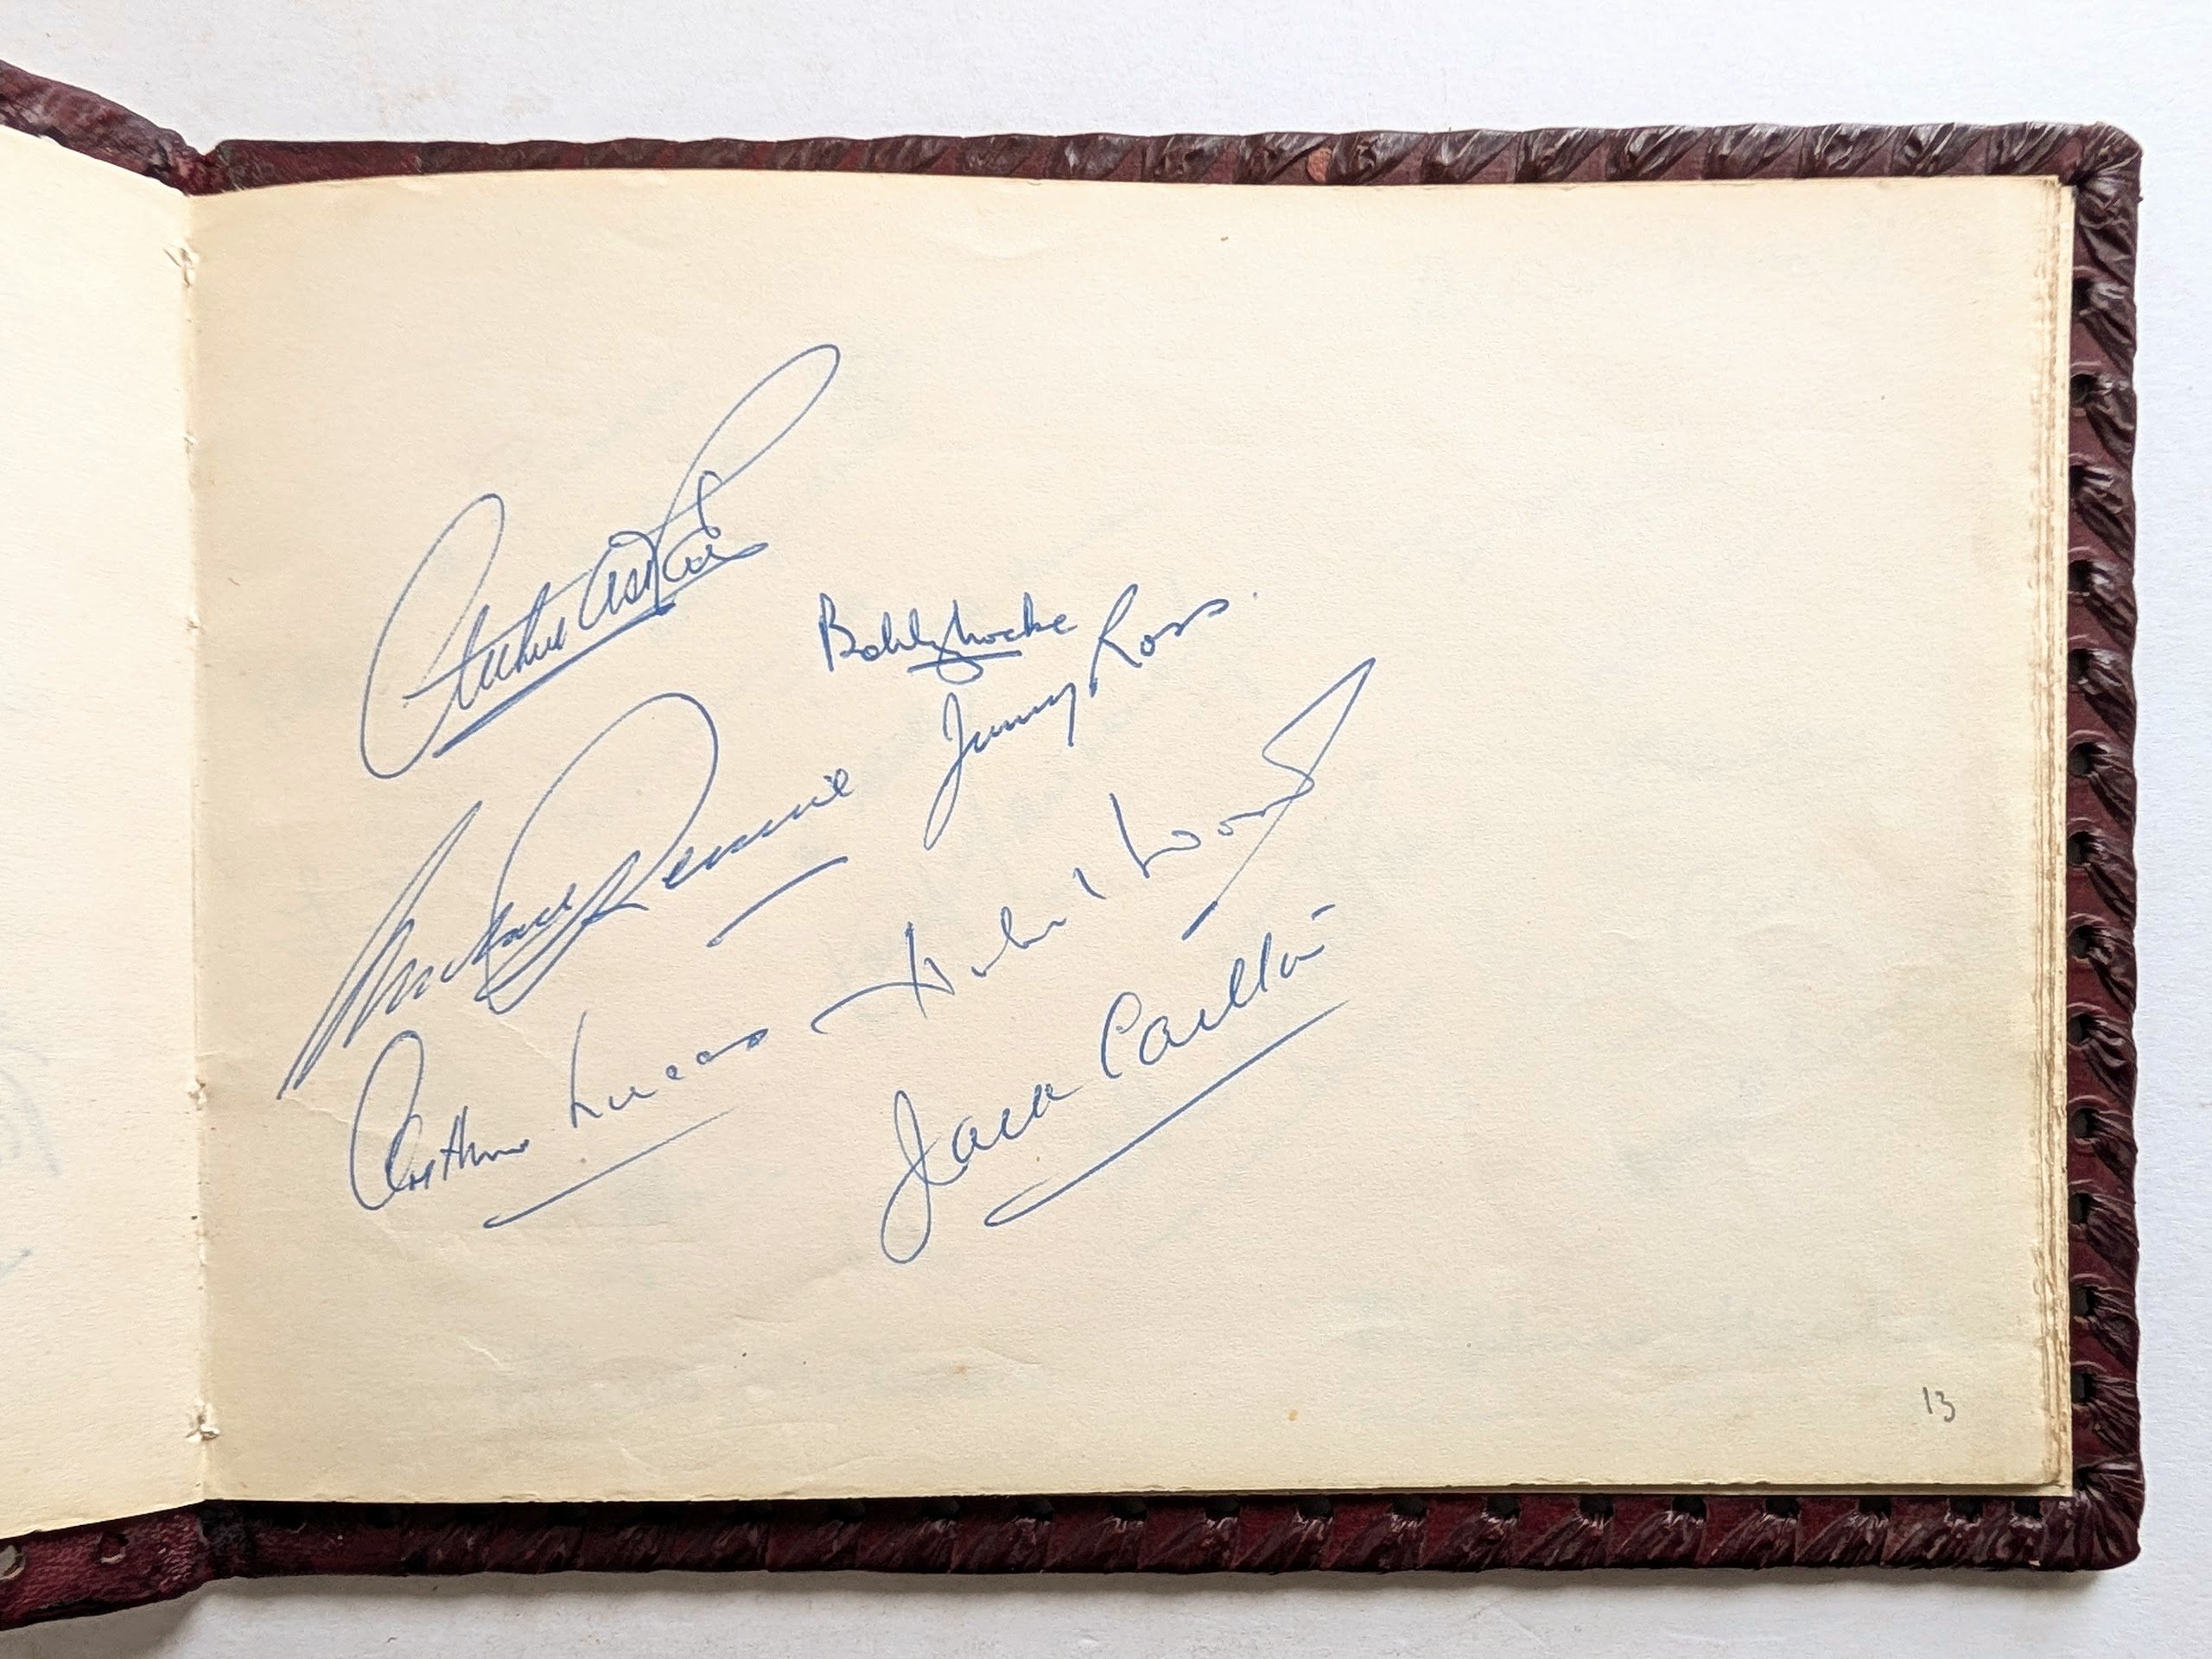 Arthur Askey
Bobby Locke
Jimmy Ross
Michael Rennie
Arthur Lucas
Wood
Jack Carlton
13